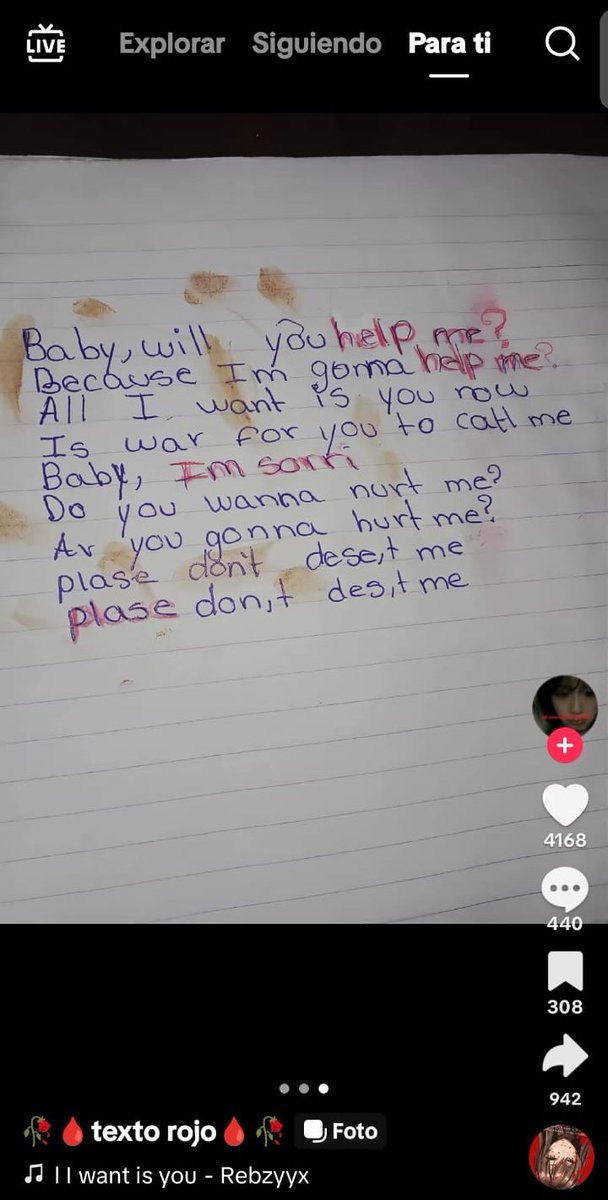 LIVE
Explorar Siguiendo Para ti
Baby, will you help me?
Because Im gonna help me?
All I want is you now
Is war for you to call me
Baby, Im sorri
Do you wanna nurt me?
Ar you gonna hurt me?
plase don't dese,t me
plase don,t des,t me
4168
440
308
942
texto rojo
Foto
l I want is you - Rebzyyx